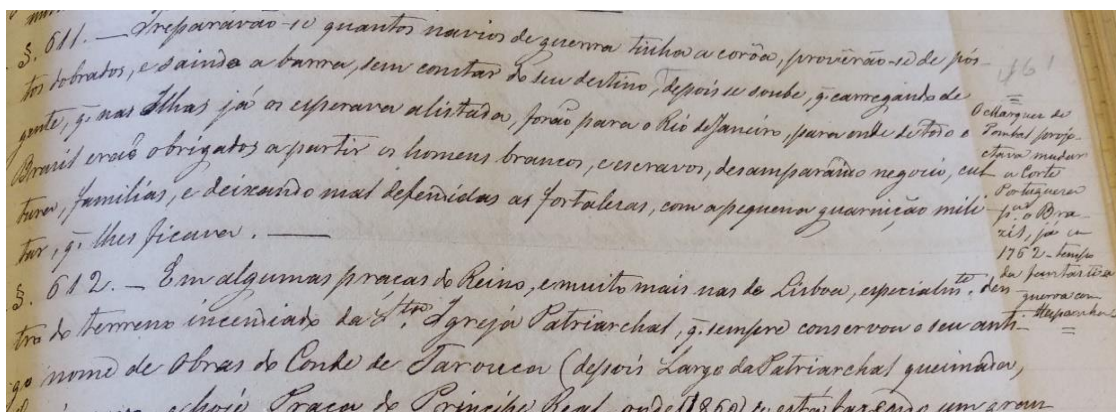 §. 611. — Preparávão-se quantos navios de guerra tinha a corôa, provêrão-se de pós-
tos dobrados, e saindo a barra, sem constar do seu destino, depois se soube, q. carregando de
gente, q. nas Ilhas já os esperava alistada, forão para o Rio de Janeiro, para onde de todo o
Brasil erão obrigados a partir os homens brancos, e escravos, desamparando negocio, cul-
tura, familias, e deixando mal defendidas as fortalezas, com a pequena guarnição mili-
tar, q. lhes ficava. —
§. 612. — Em algumas praças do Reino, e muito mais nas de Lisboa, especialm.te den-
tro do terreno incendiado da S.ta Igreja Patriarchal, q. sempre conservou o seu anti-
go nome de Obras do Conde de Tarouca (depois Largo da Patriarchal queimada,
e hoje Praça do Principe Real, onde (1860) se está fazendo um gran
1761
=
O Marquez de
Pombal proje-
ctava mudar
a Corte
Portugueza
p.a o Bra-
zil, já em
1762 - tempo
da fantastica
guerra com
Hespanha
=